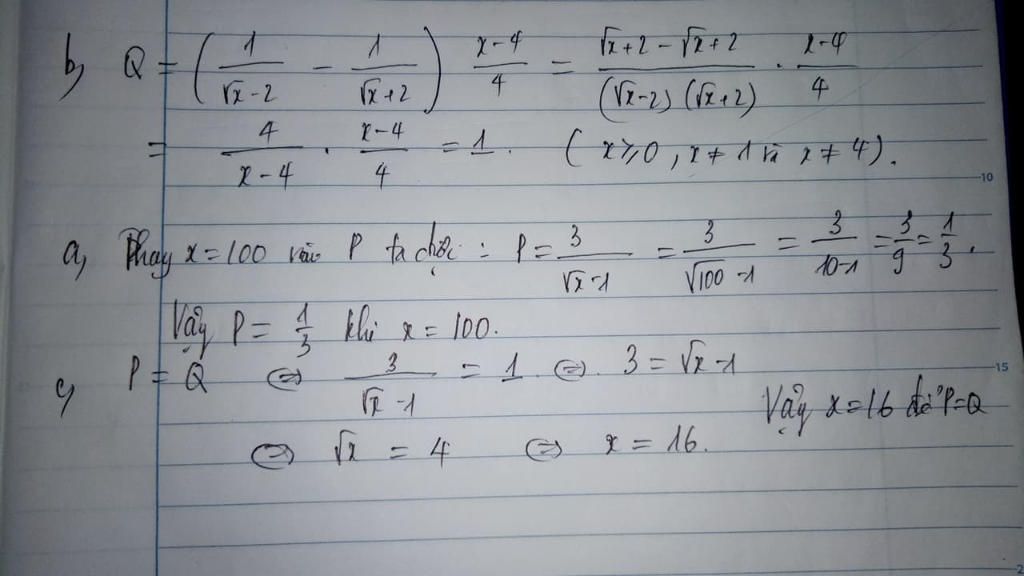 b, Q = ( 1/(√x-2) - 1/(√x+2) ) (x-4)/4 = (√x+2-√x+2)/((√x-2)(√x+2)) · (x-4)/4
= 4/(x-4) · (x-4)/4 = 1. (x ≥ 0, x ≠ 1 và x ≠ 4).
a, Thay x = 100 vào P ta được : P = 3/(√x-1) = 3/(√100-1) = 3/(10-1) = 3/9 = 1/3.
Vậy P = 1/3 khi x = 100.
c, P = Q ⇔ 3/(√x-1) = 1 ⇔ 3 = √x-1
Vậy x = 16 để P=Q
⇔ √x = 4 ⇔ x = 16.
10
15
2